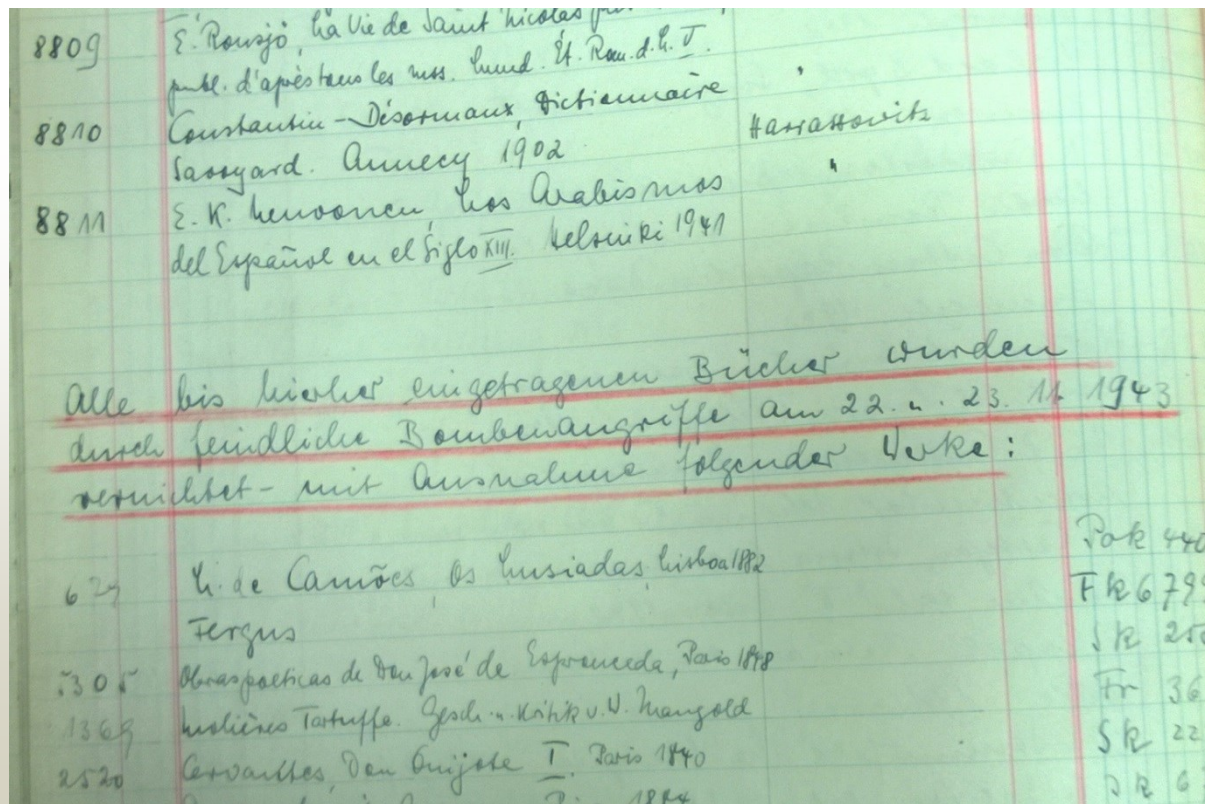 8809 E. Ronsjö, La Vie de Saint Nicolas
publ. d'après tous les mss. Lund. Ét. Rom. d. L. V.
8810 Constantin-Désormaux, Dictionnaire
Savoyard. Annecy 1902 Harrassowitz
8811 E. K. Neuvonen, Los Arabismos "
del Español en el Siglo XIII. Helsinki 1941
Alle bis hierher eingetragenen Bücher wurden
durch feindliche Bombenangriffe am 22. u. 23. 11 1943
vernichtet - mit Ausnahme folgender Werke:
L. de Camões, Os Lusiadas, Lisboa 1882 Pok 440
Fergus Fk 679
5305 Obras poeticas de Don José de Espronceda, Paris 1848 Sk
1369 Molières Tartuffe. Gesch. u. Kritik v. W. Mangold Fr 36
2520 Cervantes, Don Quijote I. Paris 1840 Sk 22